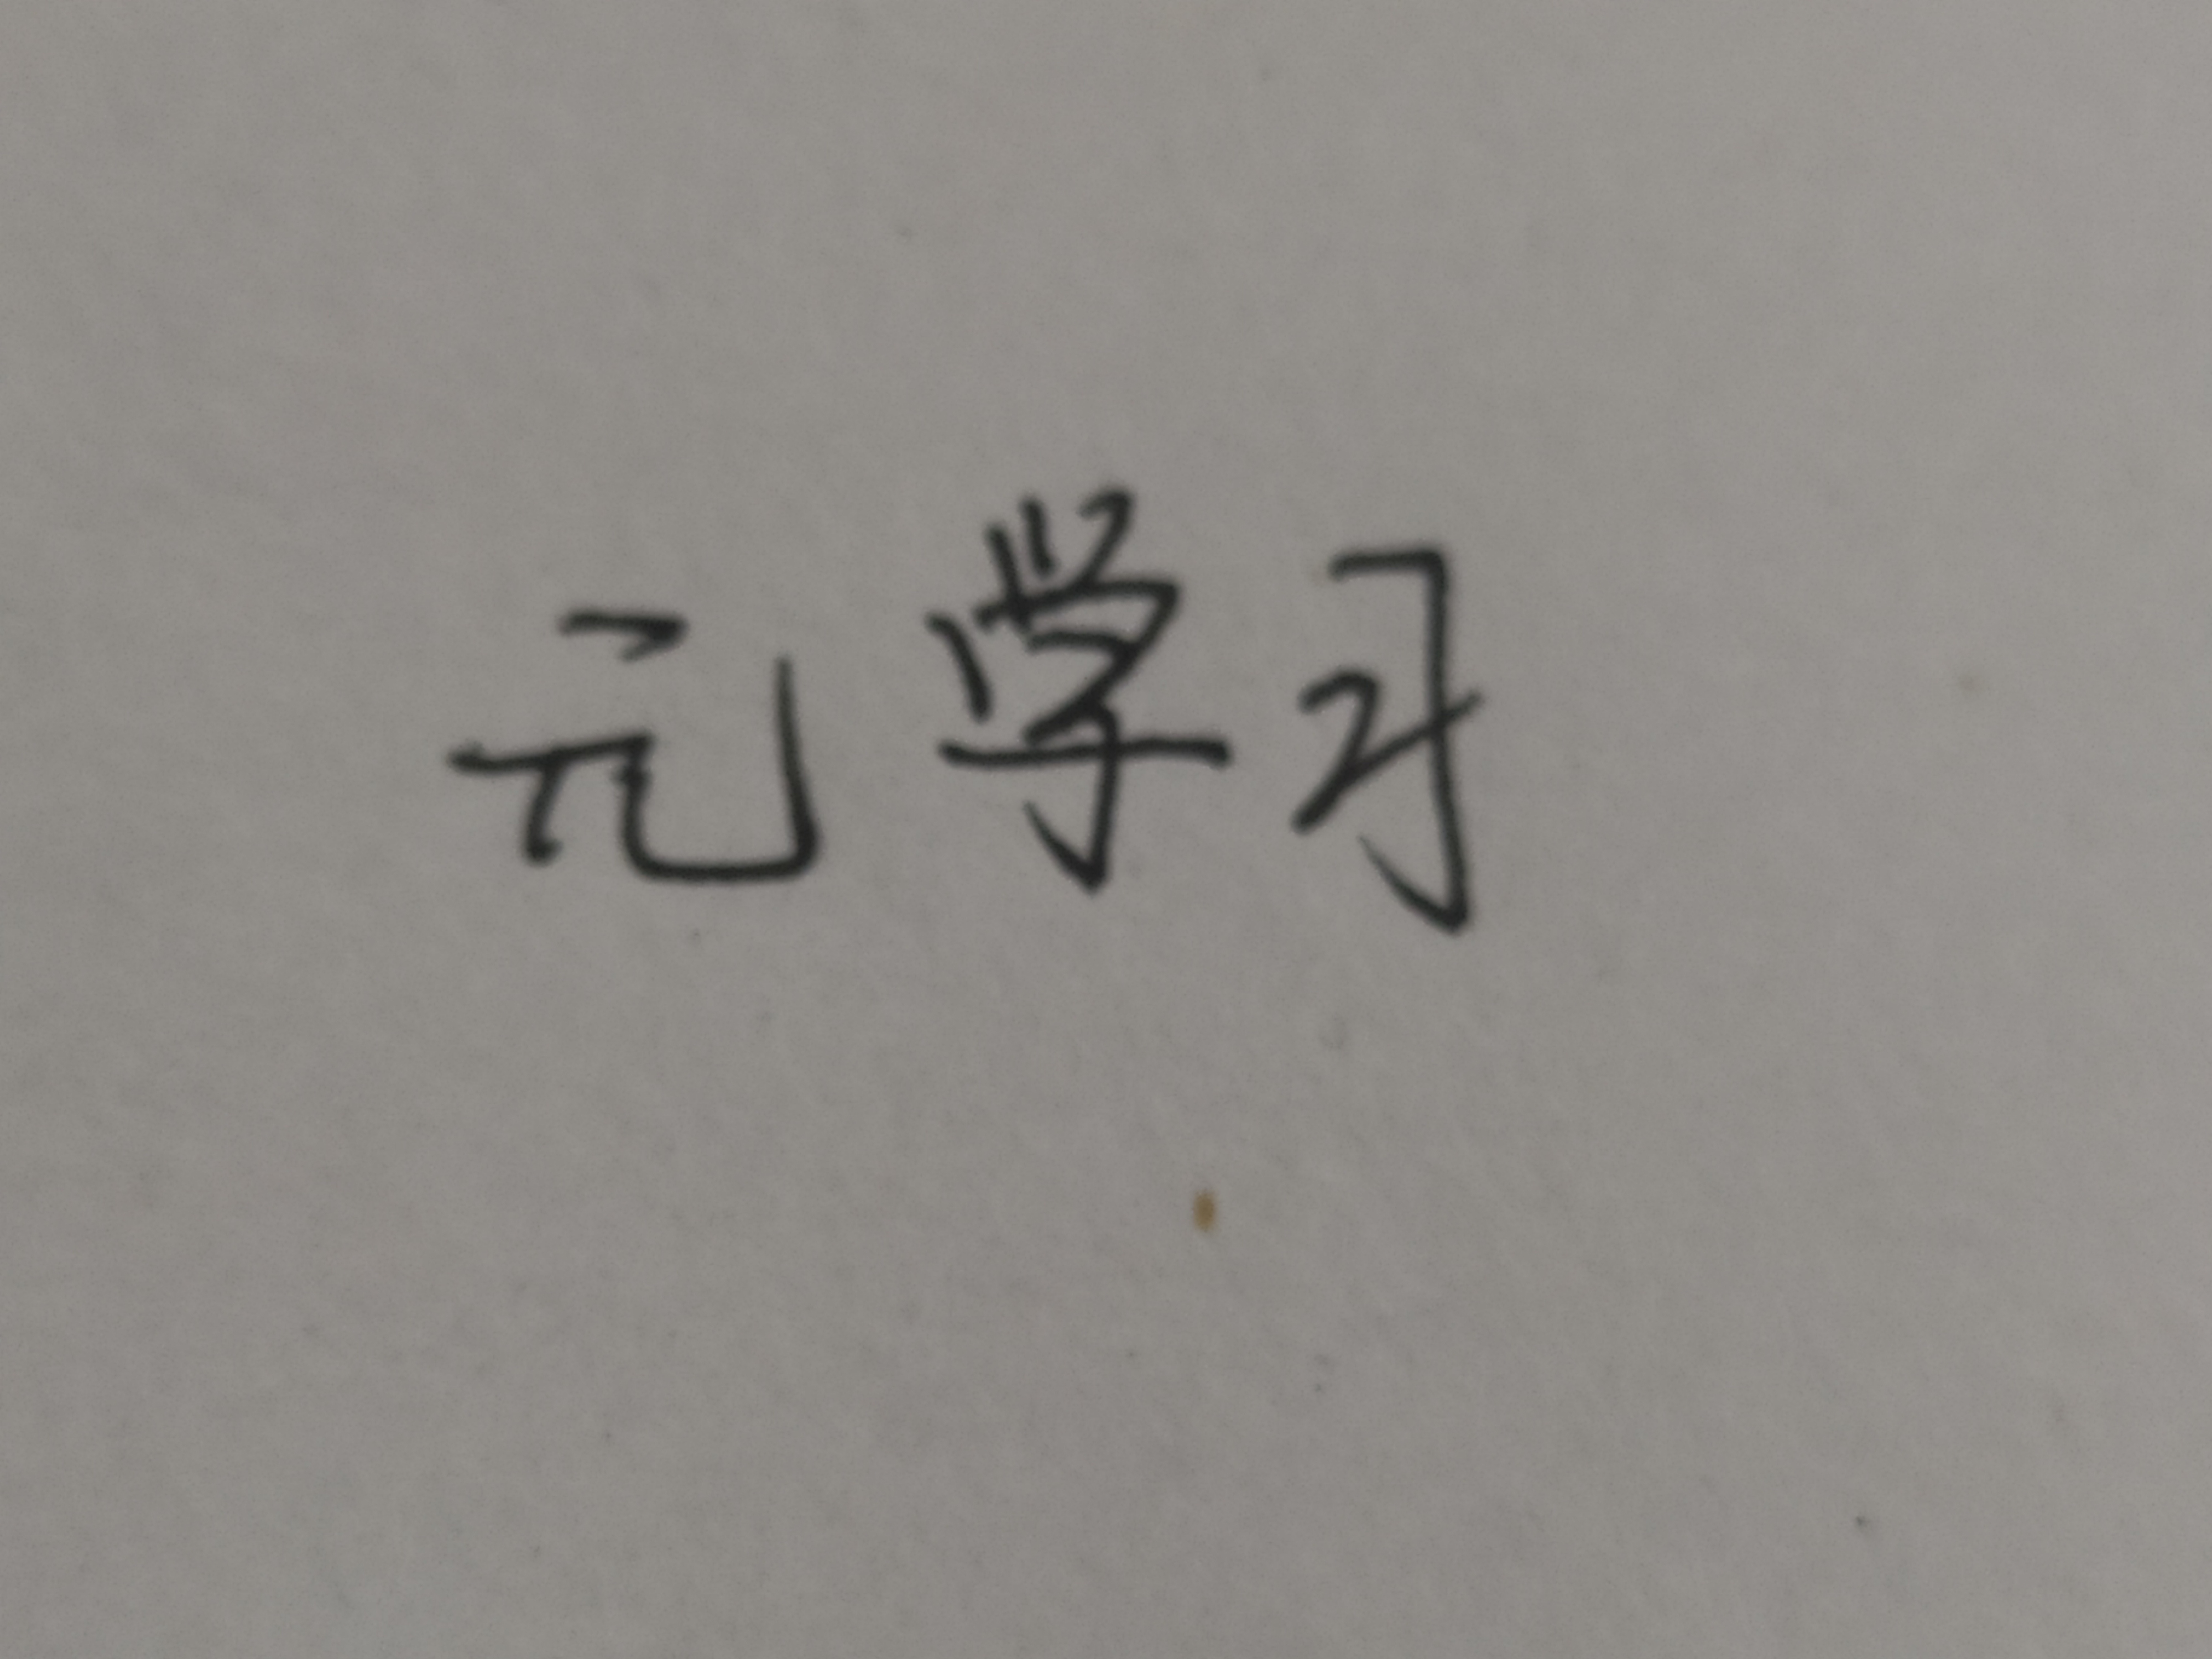 元学习